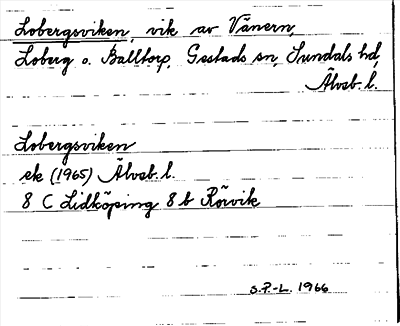 Lobergsviken, vik av Vänern,
Loberg o. Balltorp, Gestads sn, Sundals hd,
Älvsb. l.
Lobergsviken
ek (1965) Älvsb. l.
8 C Lidköping 8 b Rörvik
S.P.-L. 1966